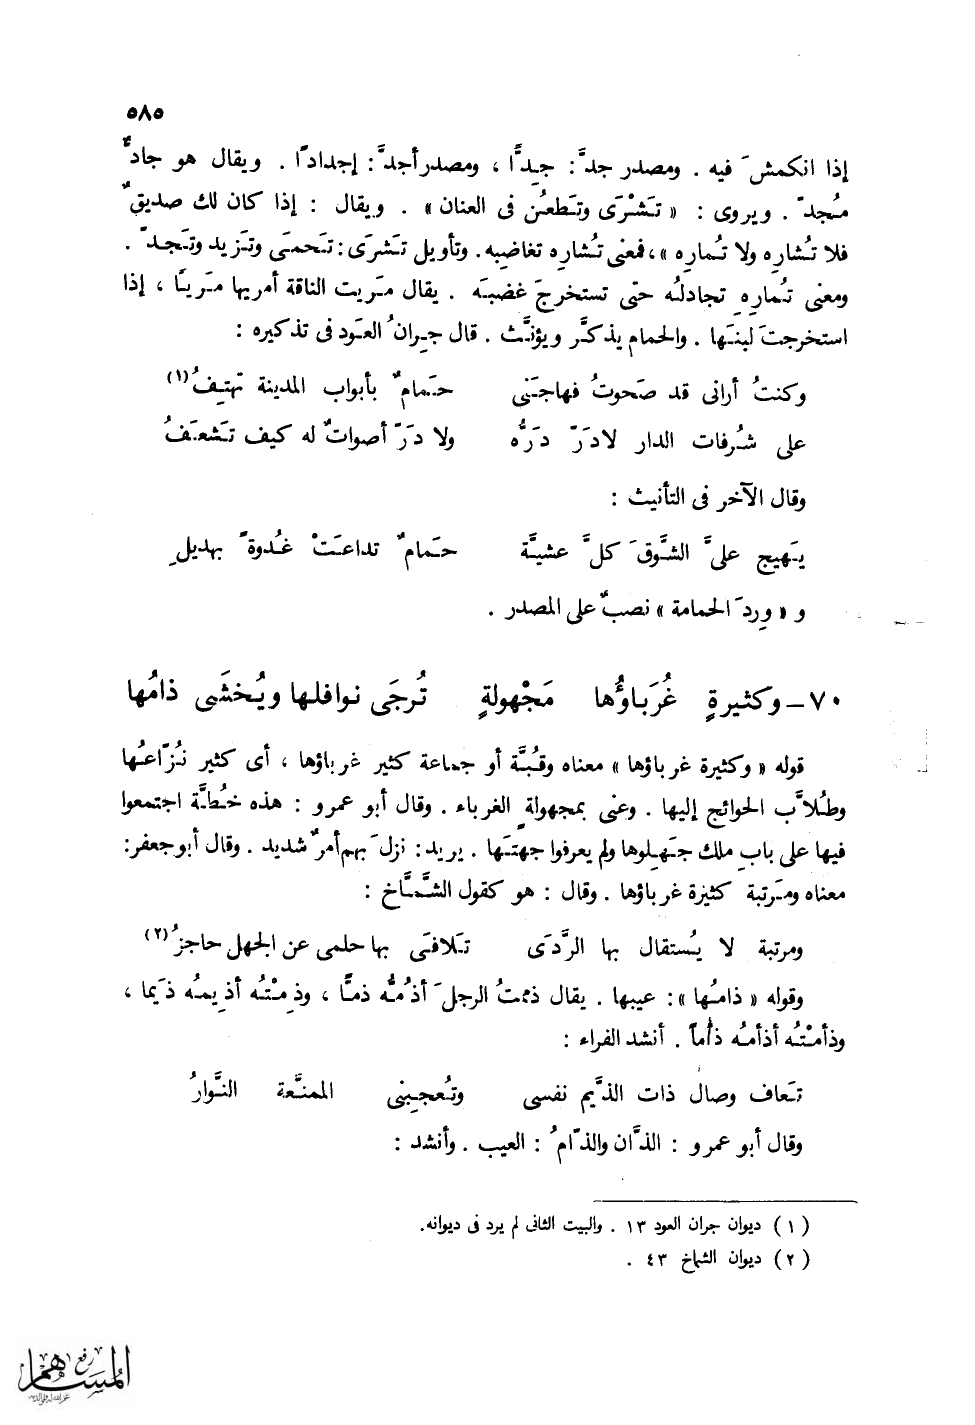 ٥٨٥
إذا انكمشَ فيه . ومصدر جدَّ: جِدًّا ، ومصدر أجدَّ: إجدادًا . ويقال هو جادٌّ
مُجدّ . ويروى : « تَشْرَى وتَطعُن فى العنان » . ويقال : إذا كان لك صديقٌ
فلا تُشاره ولا تُماره »، فمعنى تُشاره تغاضبه. وتأويل تَشرَى: تَحمَى وتَزيد وتَجدّ .
ومعنى تُمارِه تجادلُه حتى تستخرجَ غضبَه . يقال مَريت الناقة أمريها مَريًا ، إذا
استخرجتَ لبنَها . والحمام يذكَّر ويؤنَّث . قال جِران العَود فى تذكيره :
وكنتُ أرانى قد صَحوتُ فهاجَنى حَمامٌ بأبواب المدينة تهتِفُ(١)
على شُرفات الدار لادَرّ دَرُّه ولا دَرّ أصواتٌ له كيف تَشعَفُ
وقال الآخر فى التأنيث :
يَهيج علىَّ الشَّوقَ كلَّ عشيَّة حَمامٌ تداعَتْ غُدوةً بهديلِ
و « وِردَ الحمامة » نصبٌ على المصدر .
٧٠ – وكثيرةٍ غُرَباؤُها مَجْهولةٍ تُرجَى نوافلها ويُخشَى ذامُها
قوله « وكثيرة غرباؤها » معناه وقُبَّة أو جماعة كثير غرباؤها ، أى كثير نُزّاعُها
وطُلاَّب الحوائج إليها . وعنى بمجهولةٍ الغرباء . وقال أبو عمرو : هذه خُطَّة اجتمعوا
فيها على بابِ ملك جَهِلوها ولم يعرفوا جهتَها . يريد: نزلَ بهم أمرٌ شديد . وقال أبو جعفر:
معناه ومَرتبة كثيرة غرباؤها . وقال : هو كقول الشَّمَّاخ :
ومرتبة لا يُستقال بها الرَّدَى تَلافَى بها حلمى عن الجهل حاجزُ(٢)
وقوله « ذامُها »: عيبها . يقال ذممتُ الرجلَ أذُمُّه ذمًّا ، وذِمْتُه أذيمُه ذَيما ،
وذأمْتُه أذأمُه ذأْماً . أنشد الفراء :
تَعاف وصال ذات الذَّيم نفسى وتُعجِبنى الممنَّعة النَّوارُ
وقال أبو عمرو : الذَّان والذّامُ : العيب . وأنشد :
(١) ديوان جران العود ١٣ . والبيت الثانى لم يرد فى ديوانه.
(٢) ديوان الشماخ ٤٣ .